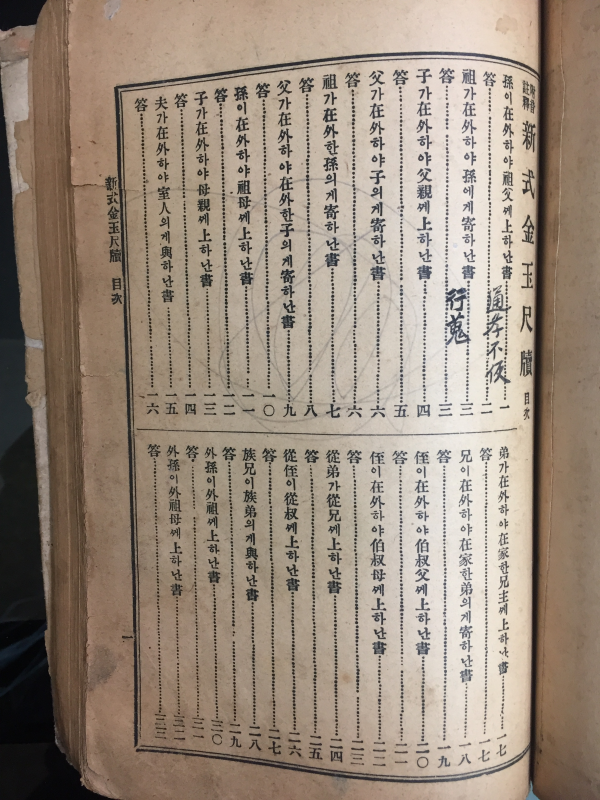 附音註釋 新式金玉尺牘 目次
孫이在外하야祖父ᄭᅦ上하난書 一
答 二
祖가在外하야孫에게寄하난書 三
答 三
子가在外하야父親ᄭᅦ上하난書 四
答 五
父가在外하야子의게寄하난書 六
答 六
祖가在外한孫의게寄하난書 七
答 八
父가在外하야在外한子의게寄하난書 九
答 一〇
孫이在外하야祖母ᄭᅦ上하난書 一一
答 一二
子가在外하야母親ᄭᅦ上하난書 一三
答 一四
夫가在外하야室人의게與하난書 一五
答 一六
不便
行蒐
弟가在外하야在家한兄主ᄭᅦ上하난書 一七
答 一七
兄이在外하야在家한弟의게寄하난書 一八
答 一九
侄이在外하야伯叔父ᄭᅦ上하난書 二〇
答 二一
侄이在外하야伯叔母ᄭᅦ上하난書 二二
答 二三
從弟가從兄ᄭᅦ上하난書 二四
答 二五
從侄이從叔ᄭᅦ上하난書 二六
答 二七
族兄이族弟의게與하난書 二八
答 二九
外孫이外祖ᄭᅦ上하난書 三〇
答 三一
外孫이外祖母ᄭᅦ上하난書 三二
答 三三
新式金玉尺牘 目次
一